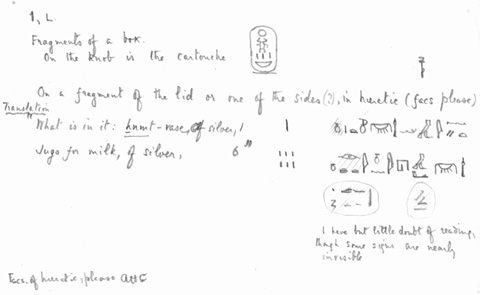 1, L.
Fragments of a box.
On the knob is the cartouche
On a fragment of the lid or one of the sides(?), in hieratic (facs please)
Translation
What is in it: hnmt-vase, of silver, 1
Jugs for milk, of silver, 6
I have but little doubt of reading,
though some signs are nearly
invisible
Facs. of hieratic, please